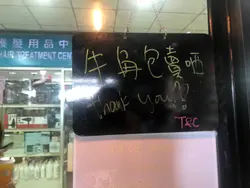 護髮用品中
HAIR TREATMENT CEN
牛角包賣晒
Thank you!!
T&C